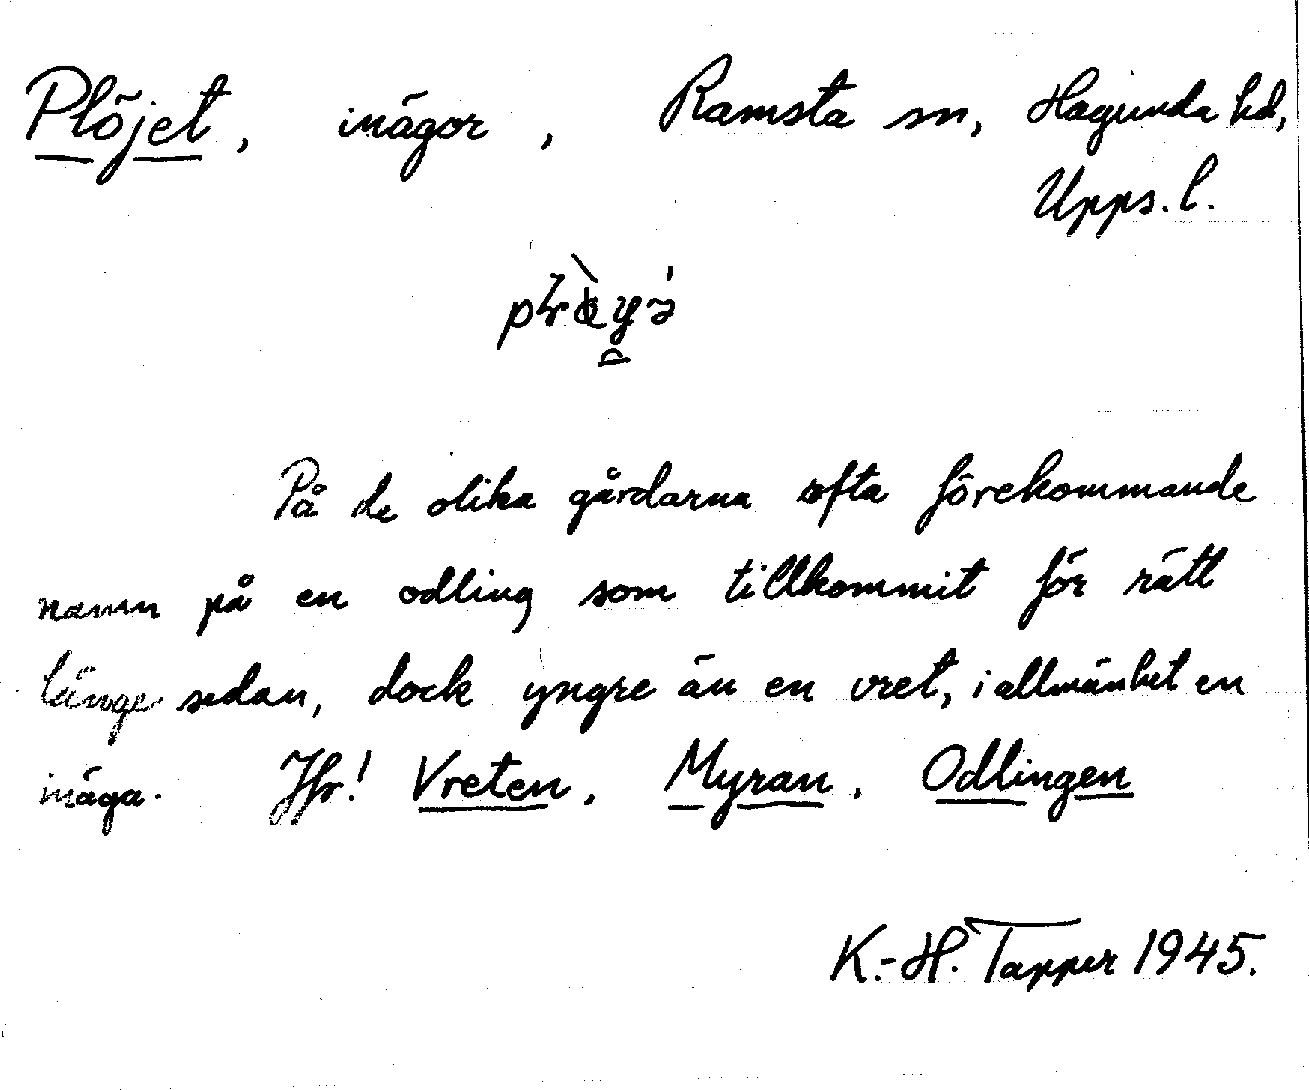 Plöjet, inägor, Ramsta sn, Hagunda hd,
Upps. l.
På de olika gårdarna ofta förekommande
namn på en odling som tillkommit för rätt
länge sedan, dock yngre än en vret, i allmänhet en
inäga. Jfr! Vreten, Myran, Odlingen
K.-H. Tapper 1945.